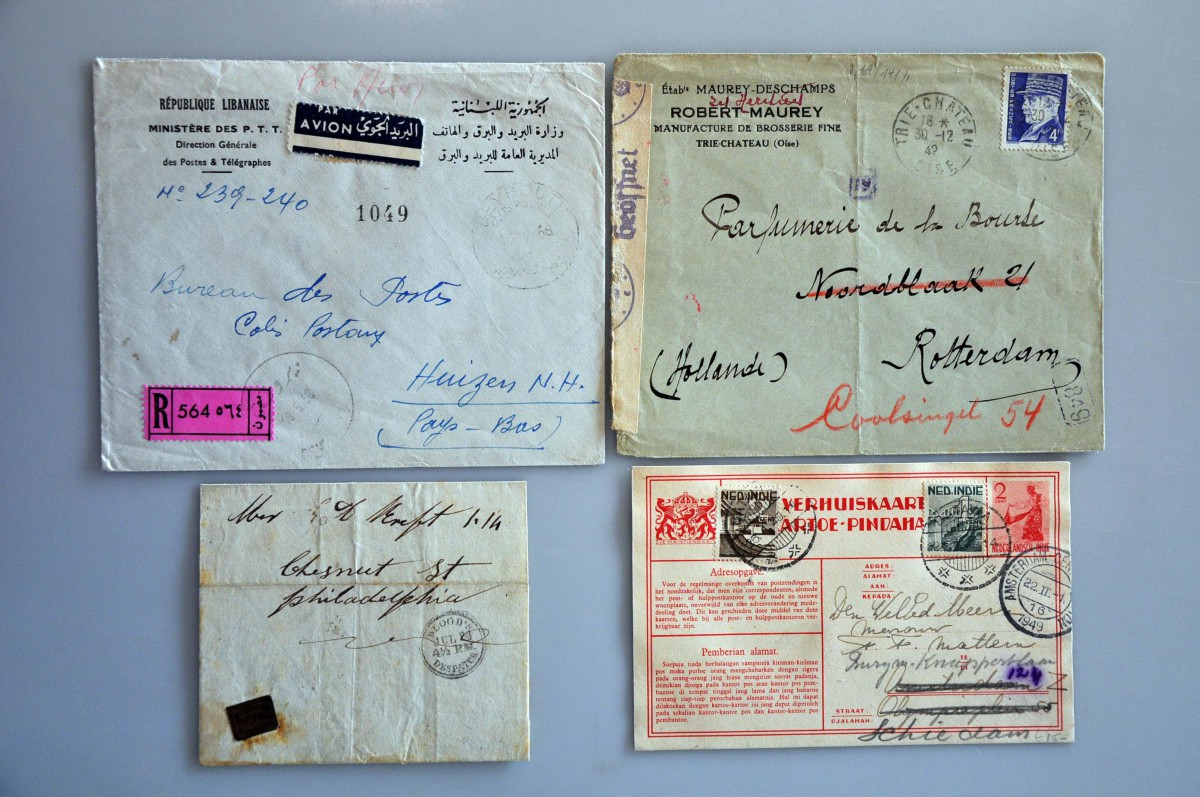 Par Avion
RÉPUBLIQUE LIBANAISE
MINISTÈRE DES P. T. T.
Direction Générale
des Postes & Télégraphes
PAR
AVION البريد الجوي
الجمهورية اللبنانية
وزارة البريد والبرق والهاتف
المديرية العامة للبريد والبرق
Nº 239-240
1049
BEYROUTH
Bureau des Postes
Colis Postaux
Huizen N.H.
(Pays-Bas)
R 564 ٥٦٤
Étabts MAUREY-DESCHAMPS
ROBERT MAUREY
MANUFACTURE DE BROSSERIE FINE
TRIE-CHATEAU (Oise)
TRIE-CHATEAU
18 *
30 -12
42
OISE
4F
Geöffnet
Parfumerie de la Bourse
Noordblaak 21
Rotterdam
(Hollande)
849
Coolsingel 54
Chesnut St
Philadelphia
BLOOD'S
JUL
4½ P.M.
DESPATCH
NED.INDIE
VERHUISKAART
ARTOE-PINDAHA
NED.INDIE
2
CENT
NEDERLANDSCH INDIE
Adresopgave.
Voor de regelmatige overkomst van postzendingen is
het noodzakelijk, dat men zijn correspondenten, alsmede
het post- of hulppostkantoor op de oude en nieuwe
woonplaats, onverwijld van elke adresverandering mede-
deeling doet. Dit kan geschieden door middel van deze
kaarten, welke bij alle post- en hulppostkantoren ver-
krijgbaar zijn.
Pemberian alamat.
Soepaja tiada berhalangan sampainja kiriman-kiriman
pos maka perloe orang mengchabarkan dengan sigera
pada orang-orang jang biasa mengirim soerat padanja,
demikian djoega pada kantor pos atau kantor pos pem-
bantoe di tempat tinggal jang lama dan jang baharoe
tentang tiap-tiap perochahan alamatnja. Hal ini dapat
dilakoekan dengan kartoe-kartoe ini jang dapat diperoleh
pada sekalian kantor-kantor pos dan kantor-kantor pos
pembantoe.
ADRES:
ALAMAT:
AAN:
KEPADA:
AMSTERDAM
22.II.
16
1949
Mevrouw
124
STRAAT:
DJALAHAN:
Schiedam